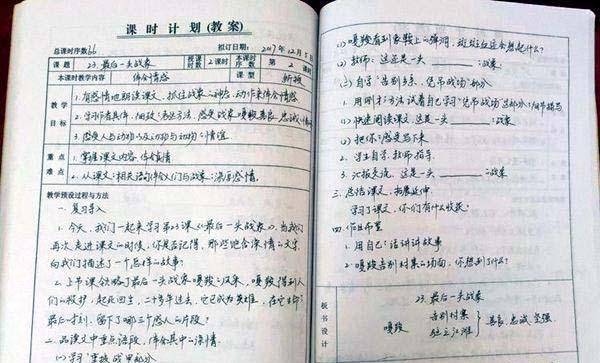 课时计划(教案)
总课时序数66 拟订日期: 2017年12月5日
课题 23.最后一头战象 授课时数 2课时 本课时序数 第2课时
本课时教学内容 体会情感 课型 新授
教学目标
1.有感情地朗读课文,抓住战象的神态、动作来体会情感
2.学习作者具体、细致的表达方法,感受战象嘎羧善良、忠诚
3.感受人与动物、动物与动物的情谊
重点难点
1.掌握课文内容,体会真情
2.从课文的相关语句体会人们与战象的深厚感情.
教学预设过程与方法
一.复习导入
1.今天,我们一起来学习第23课《最后一头战象》.当我们
再次走进课文的时候,你是否记得,那些饱含深情的文字
向我们描述了一个怎样的故事?
2.上节课领略了最后一头战象嘎羧的风采,嘎羧得到人
们的救护,起死回生,二十多年过去,它已成为英雄,在它生命的
最后时刻,留下了哪三个感人的片段?
二.品读文中重点语段,体会其中的深情
(一)学习"重披战甲"部分
(1)嘎羧看到象鞍上的弹洞,斑斑血迹会想起什么?
(2)教师:这是一头 的战象
(二)自学"告别乡亲、凭吊战场"部分
1.用刚才的方法试着自学"凭吊战场"这部分
(1)快速阅读课文.这是一头 的战象
(2)把你的感受写下来
2.学生自学,教师指导.
3.汇报交流.这是一头 的战象
三.总结课文,拓展延伸.
学习了课文,你们有什么收获?
四.作业布置
1.用自己的话讲讲故事
2.嘎羧告别村寨的场面,你想到了什么?
板书设计
23.最后一头战象
嘎羧
告别村寨
驻立江滩
善良、忠诚、坚强